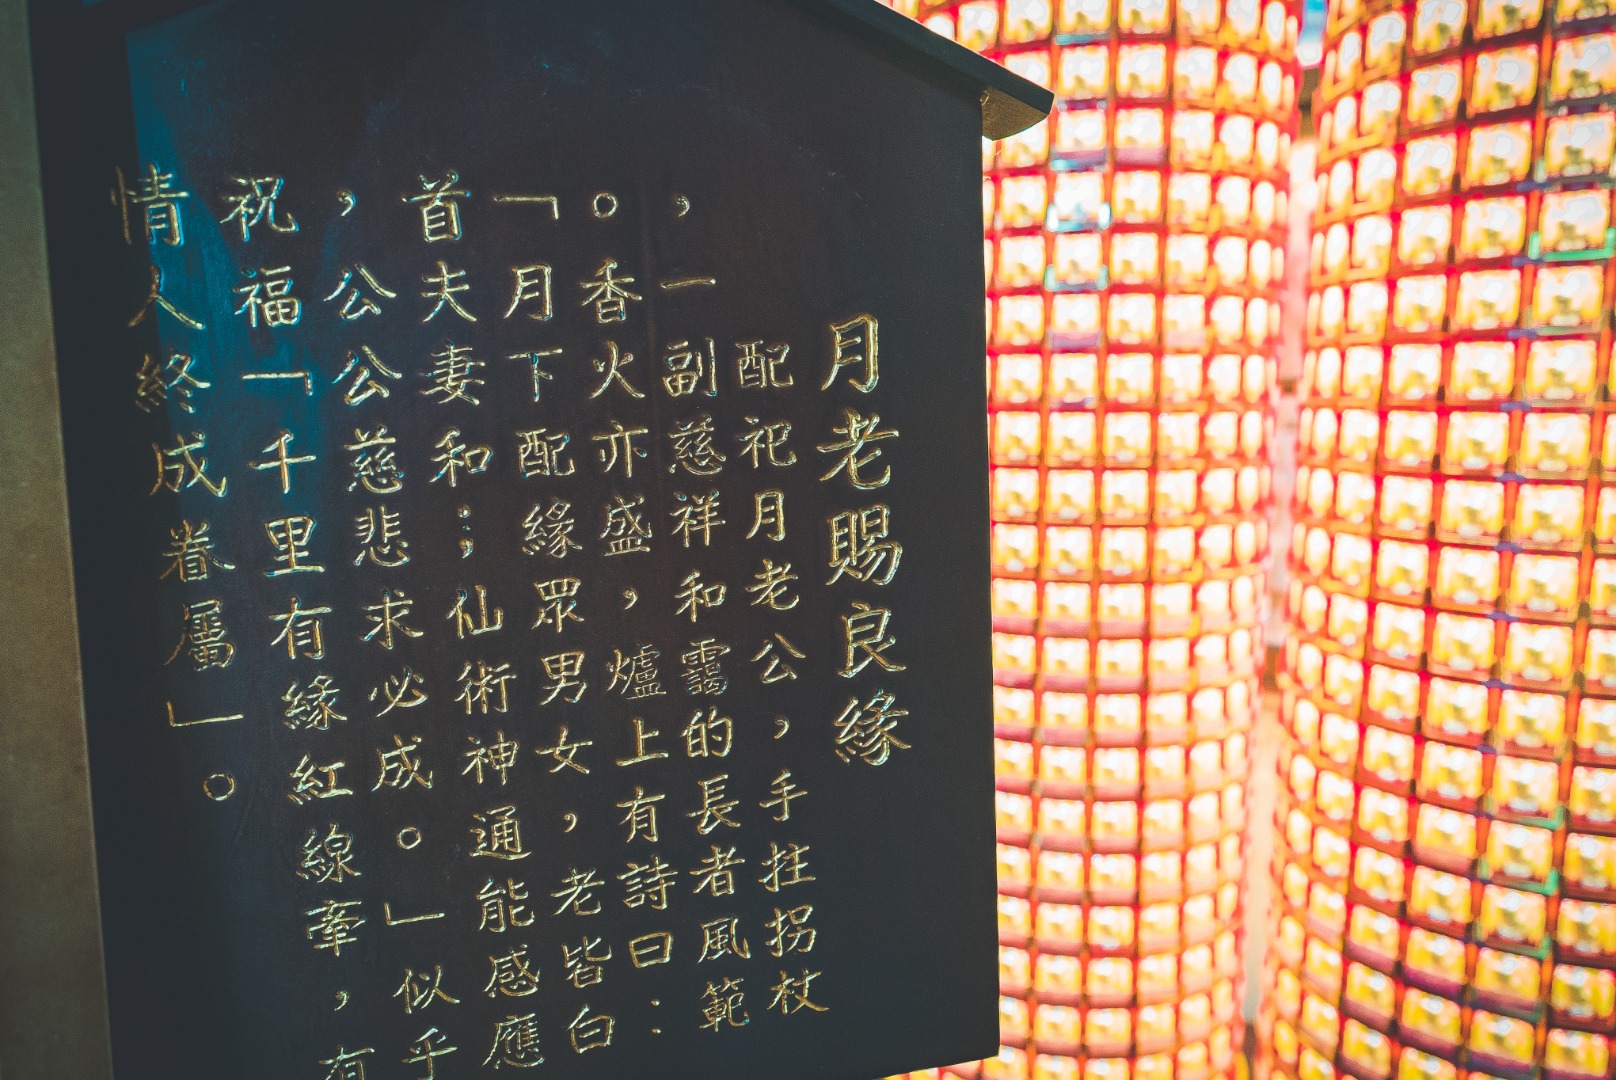 月老賜良緣
配祀月老公，手拄拐杖
，一副慈祥和靄的長者風範
。香火亦盛，爐上有詩曰：
「月下配緣眾男女，老皆白
首夫妻和；仙術神通能感應
，公公慈悲求必成。」似乎
祝福「千里有緣紅線牽，有
情人終成眷屬」。